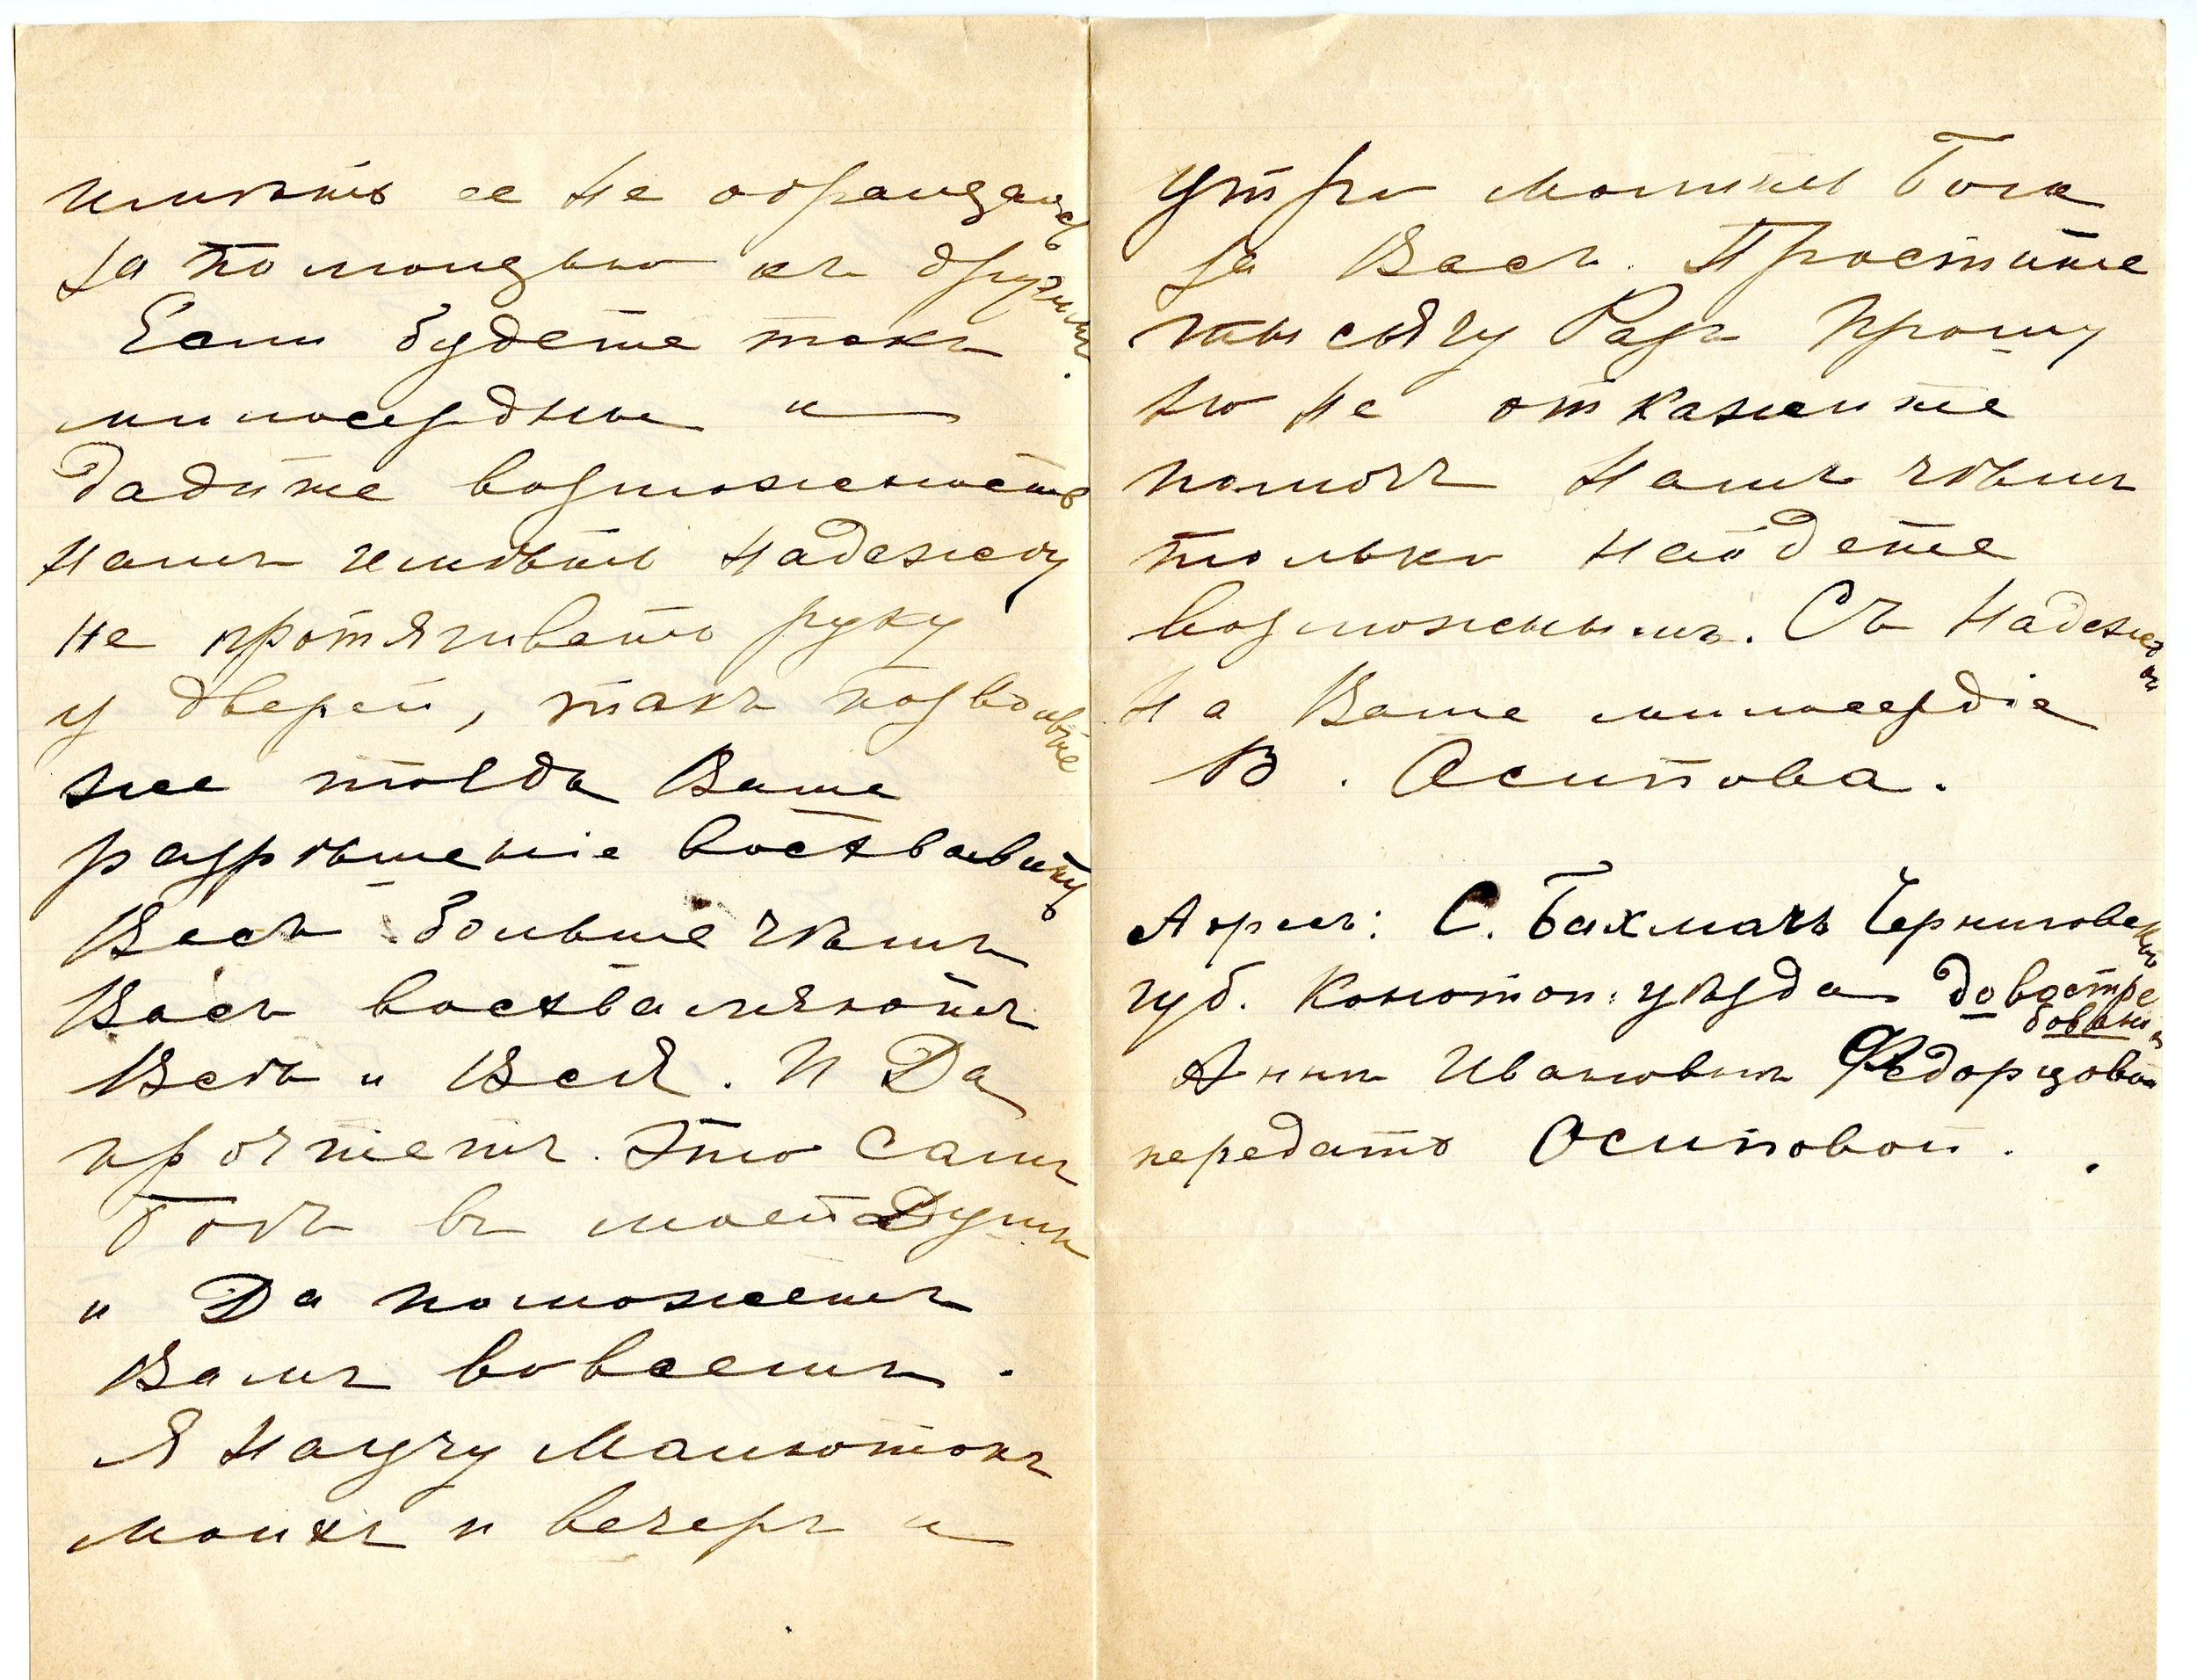 имѣть ее не обращаясь
за помощью къ другимъ.
Если будете такъ
милосердны и
дадите возможность
намъ имѣть надежду
не протягивать руку
у дверей, такъ позвольте
же тогда Ваше
разрѣшеніе восхвалить
Васъ больше чѣмъ
Васъ восхваляютъ
Всѣ и Вся. И Да
прочтетъ Это Самъ
Богъ въ моей Душѣ
и Да поможетъ
Вамъ вовсемъ.
Я Научу Малютокъ
моихъ и вечеръ и
утро Молить Бога
за Васъ. Простите
тысячу Разъ прошу
но не откажите
помочь Намъ чѣмъ
только найдете
возможнымъ. Съ Надеждой
На Ваше милосердіе
В. Осипова.
Адресъ: С. Бахмачъ Черниговской
губ. Конотоп. уѣзда довостребованія
Аннѣ Ивановнѣ Федорцовой
передать Осиповой.